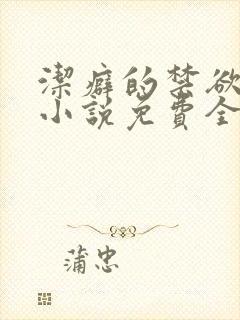 潔癖的禁欲
小說免費全
蒲忠